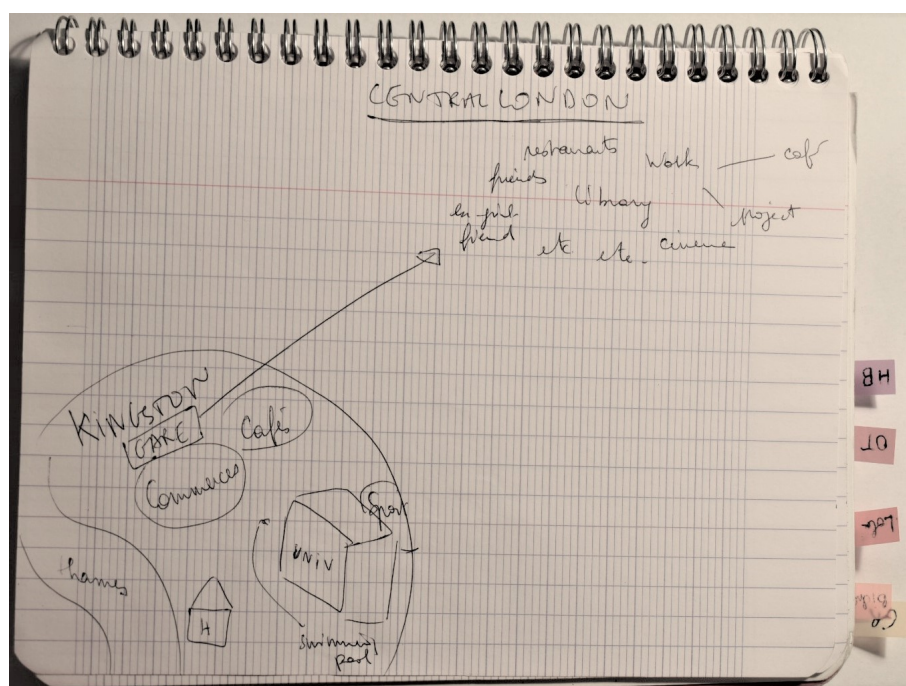 CENTRAL LONDON
restaurants
work
café
friends
library
project
friend
etc etc.
KINGSTON
GARE
Cafés
Commerces
Sport
UNIV
thames
H
swimming
pool
HB
OT
Lola
GR